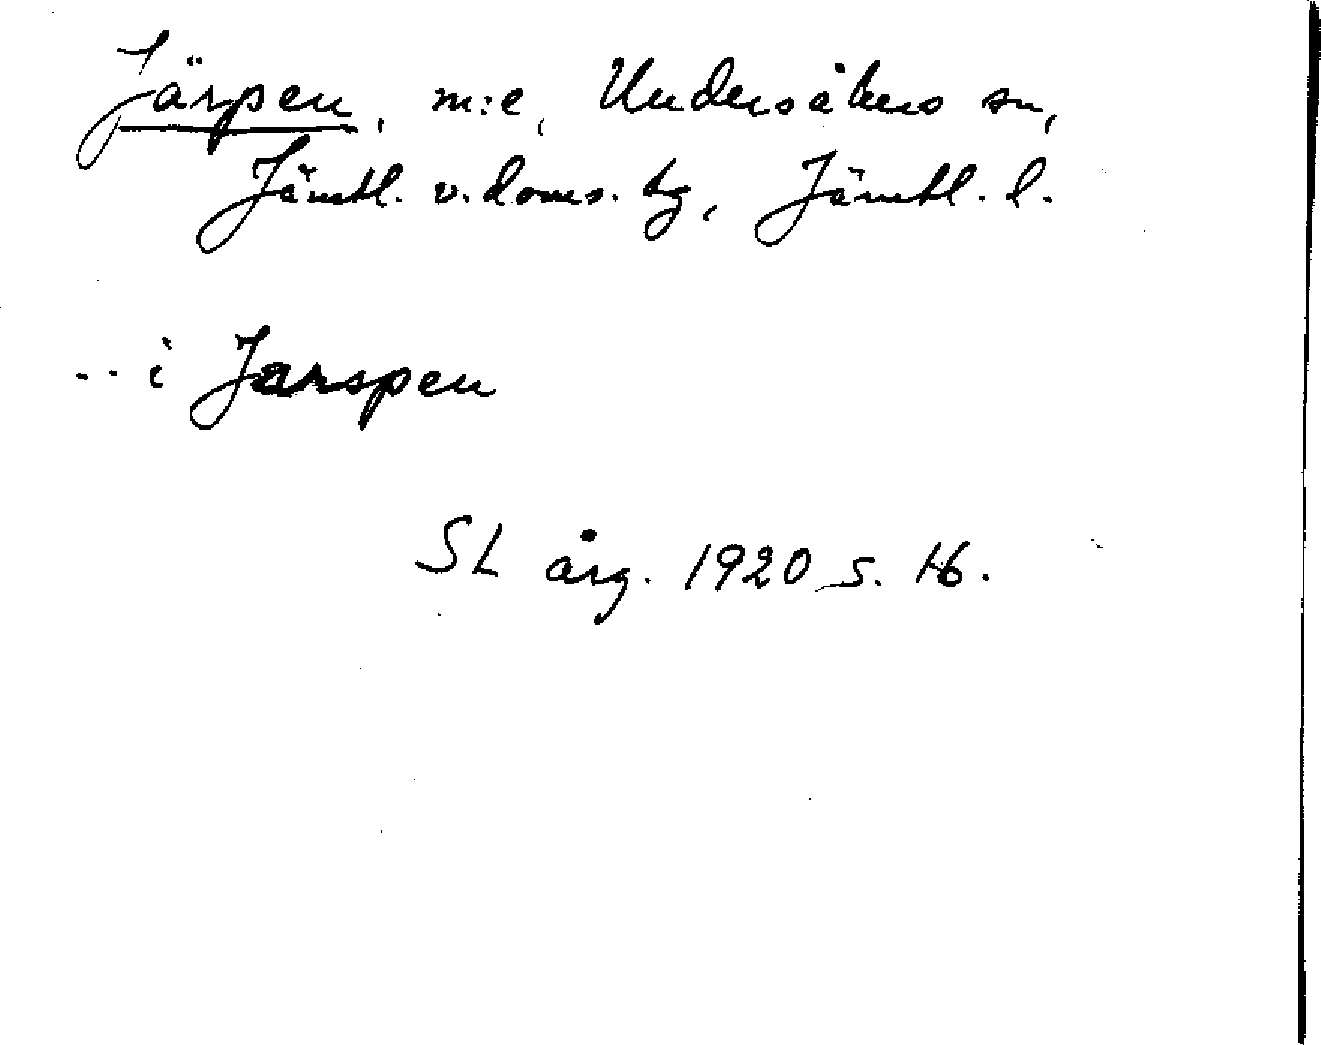 Järpen, m:e, Undersåkers sn,
Jämtl. v. doms. tg, Jämtl. l.
-- i Jarspen
SL årg. 1920 s. 16.